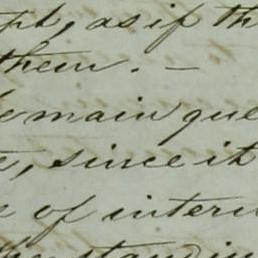 pt, as if th
them. —
omain que
, since it
of intern
the standin